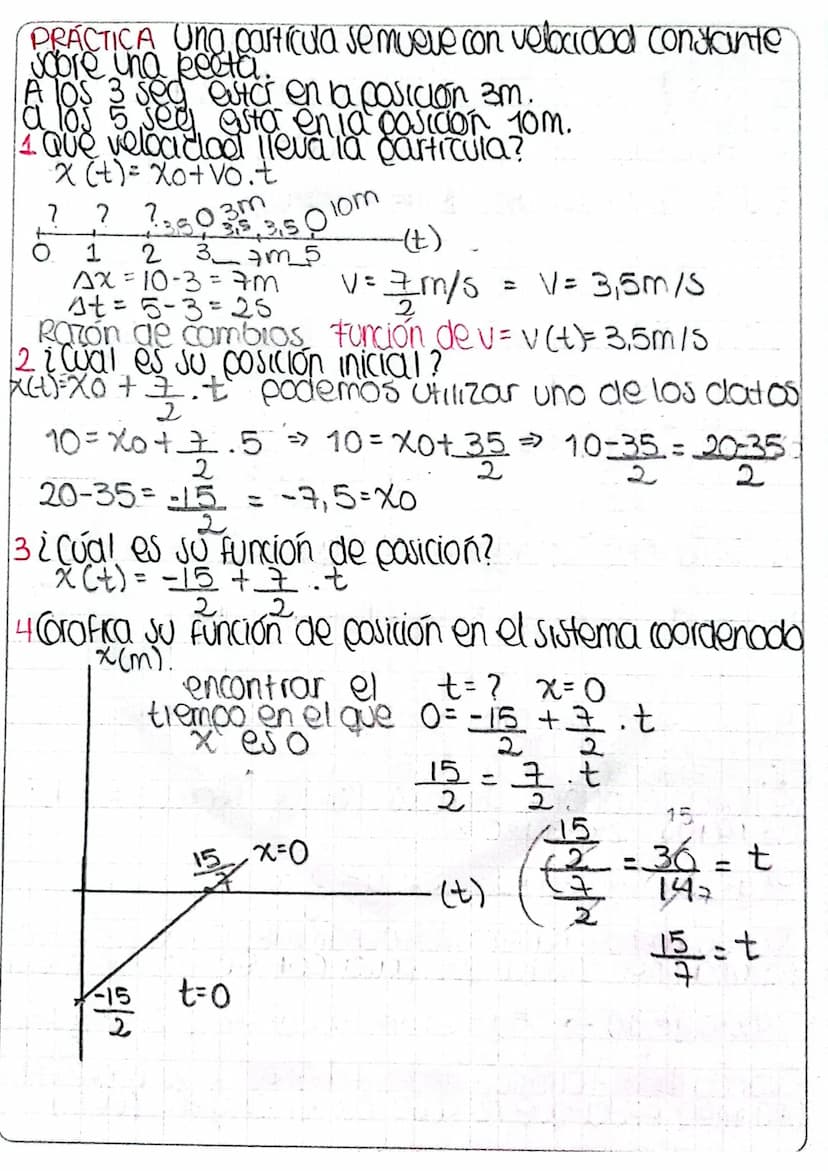 PRÁCTICA Una partícula se mueve con velocidad constante
sobre una recta.
A los 3 seg está en la posición 3m.
a los 5 seg está en la posición 10m.
1 Qué velocidad lleva la partícula?
x(t)= x0+v0.t
? ? ? 3,5 0 3m 3,5 3,5 0 10m
0 1 2 3 7m 5 (t)
Δx = 10-3 = 7m V= 7/2 m/s = V= 3,5m/s
Δt = 5-3 = 2s
Razón de cambios función de v= v(t)= 3,5m/s
2 ¿Cual es su posición inicial?
x(t)=x0 + 7/2 .t podemos utilizar uno de los datos
10= x0+ 7/2 .5 => 10= x0+ 35/2 => 10-35/2 = 20-35/2
20-35= -15/2 = -7,5=x0
3 ¿Cúal es su función de posición?
x(t) = -15/2 + 7/2 .t
4 Grafica su función de posición en el sistema coordenado
x(m).
encontrar el t=? x=0
tiempo en el que 0= -15/2 + 7/2 .t
x es 0
15/2 = 7/2 .t
15/7 x=0 (t)
( 15/2 / 7/2 = 30/14 = t
15
7
15/7 = t
-15/2 t=0